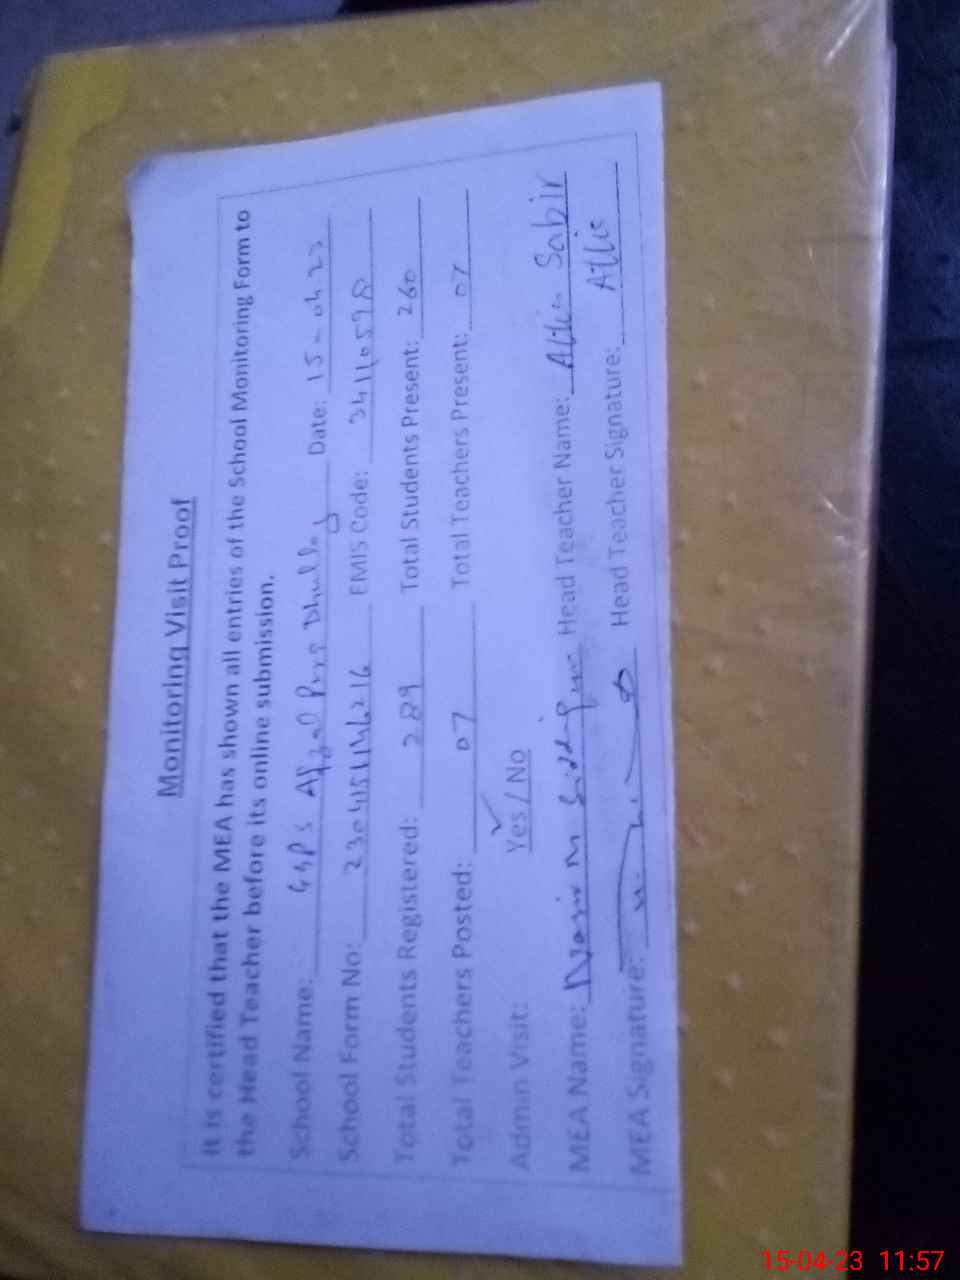 Monitoring Visit Proof
It is certified that the MEA has shown all entries of the School Monitoring Form to
the Head Teacher before its online submission.
School Name: GGPS Afzal Dhullay Date: 15-04-23
School Form No: EMIS Code:
Total Students Registered: 289 Total Students Present: 260
Total Teachers Posted: 07 Total Teachers Present: 07
Admin Visit: Yes / No
MEA Name: Head Teacher Name: Sabir
MEA Signature: Head Teacher Signature:
15-04-23 11:57